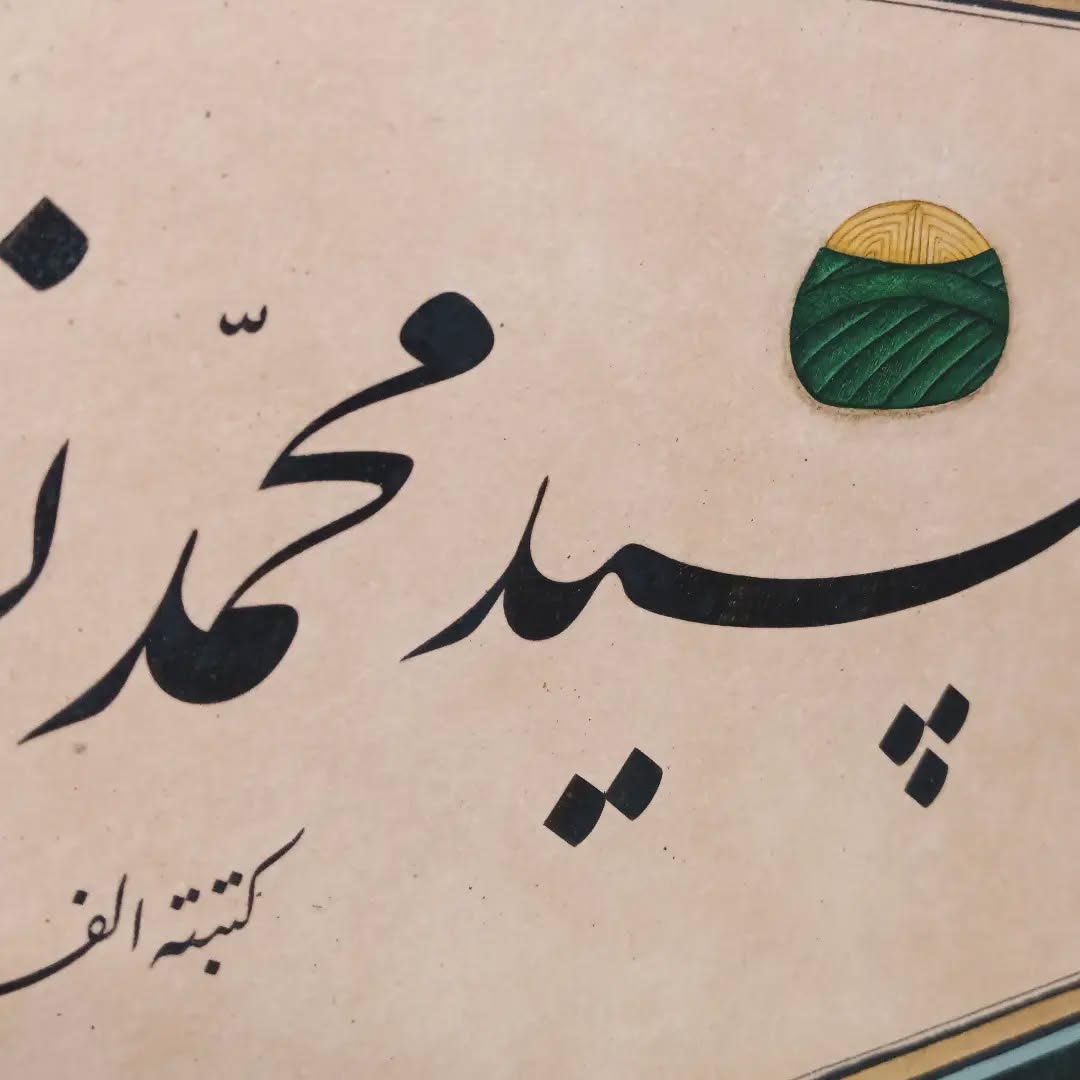 سيد محمّد
كتبته